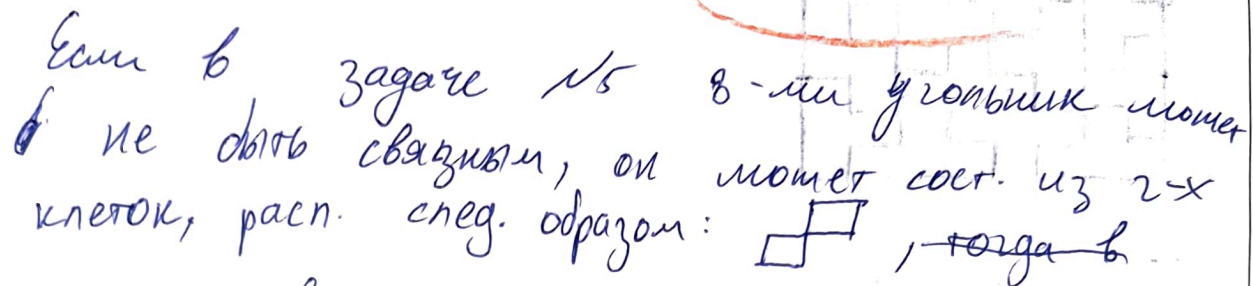 Если в задаче №5 8-ми угольник может
не быть связным, он может сост. из 2-х
клеток, расп. след. образом: , тогда в